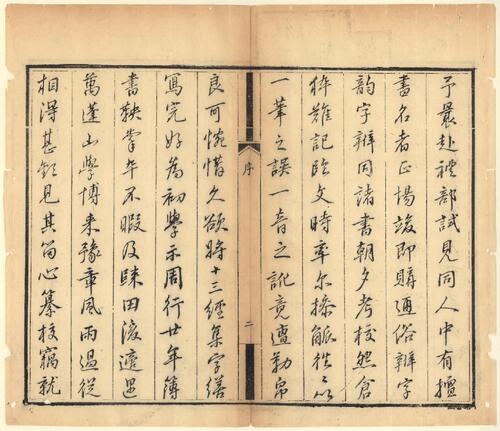 予曩赴礼部試見同人中有擅
書名者比場竣即購通俗辨字
韵字辨同諸書朝夕考校然倉
猝難記臨文時率尔操觚往〻以
一筆之誤一音之訛竟遭勒帛
序
二
良可惋惜久欲將十三經集字繕
寫完好為初學示周行廿年簿
書鞅掌卒不暇及歸田後適遇
萬蓬山學博来豫章風雨過從
相得甚歡見其留心纂校竊就